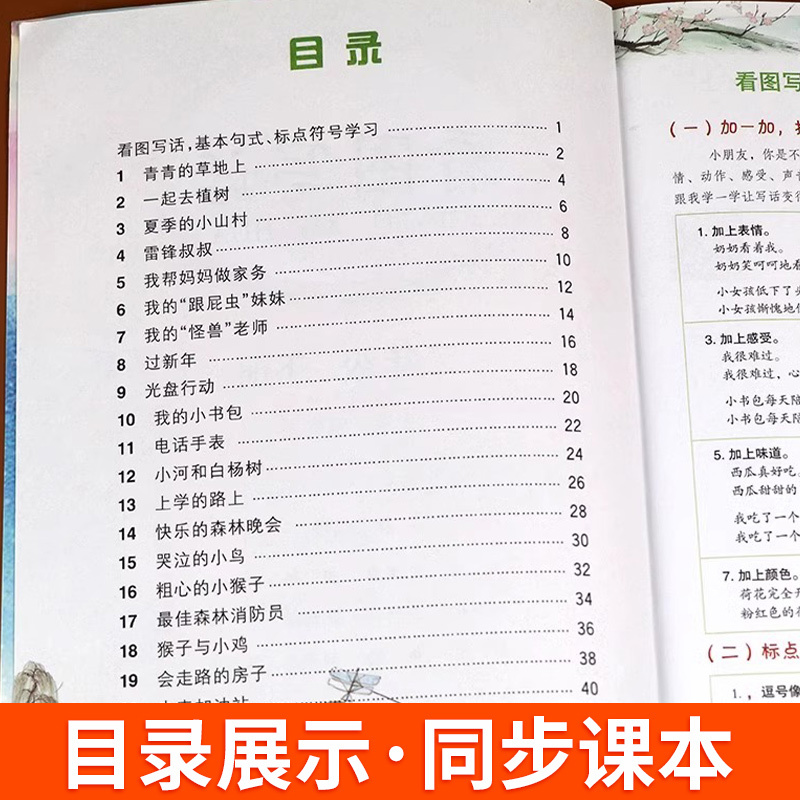 目录
看图写话,基本句式、标点符号学习 1
1 青青的草地上 2
2 一起去植树 4
3 夏季的小山村 6
4 雷锋叔叔 8
5 我帮妈妈做家务 10
6 我的“跟屁虫”妹妹 12
7 我的“怪兽”老师 14
8 过新年 16
9 光盘行动 18
10 我的小书包 20
11 电话手表 22
12 小河和白杨树 24
13 上学的路上 26
14 快乐的森林晚会 28
15 哭泣的小鸟 30
16 粗心的小猴子 32
17 最佳森林消防员 34
18 猴子与小鸡 36
19 会走路的房子 38
加油站 40
看图写
(一)加一加,
小朋友,你是不
情、动作、感受、声音
跟我学一学让写话变得
1. 加上表情。
奶奶看着我。
奶奶笑呵呵地看
小女孩低下了头
小女孩惭愧地低
3. 加上感受。
我很难过。
我很难过,心
小书包每天陪
小书包每天陪
5. 加上味道。
西瓜真好吃。
西瓜甜甜的
我吃了一个
我吃了一个
7. 加上颜色。
荷花完全开
粉红色的荷
(二)标点
1. ,逗号像
目录展示·同步课本